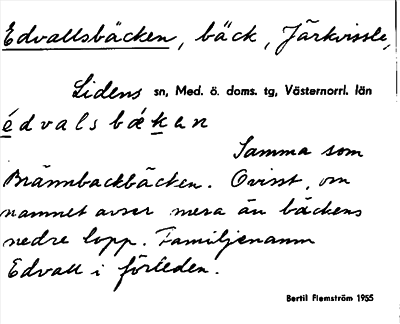 Edvallsbäcken, bäck, Järkvissle,
Lidens sn, Med. ö. doms. tg, Västernorrl. län
édvalsbækan
Samma som
Brännbackbäcken. Ovisst, om
namnet avser mera än bäckens
nedre lopp. Familjenamn
Edvall i förleden.
Bertil Flemström 1955